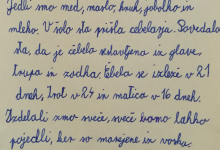 Jedli smo med, maslo, kruh, jabolko in
mleko. V šolo sta prišla čebelarja. Povedala
sta, da je čebela sestavljena iz glave,
trupa in zadka. Čebela se izleže v 21
dneh, trot v 24 in matica v 16 dneh.
Izdelali smo sveče, sveče bomo lahko
pojedli, ker so narejene iz voska.